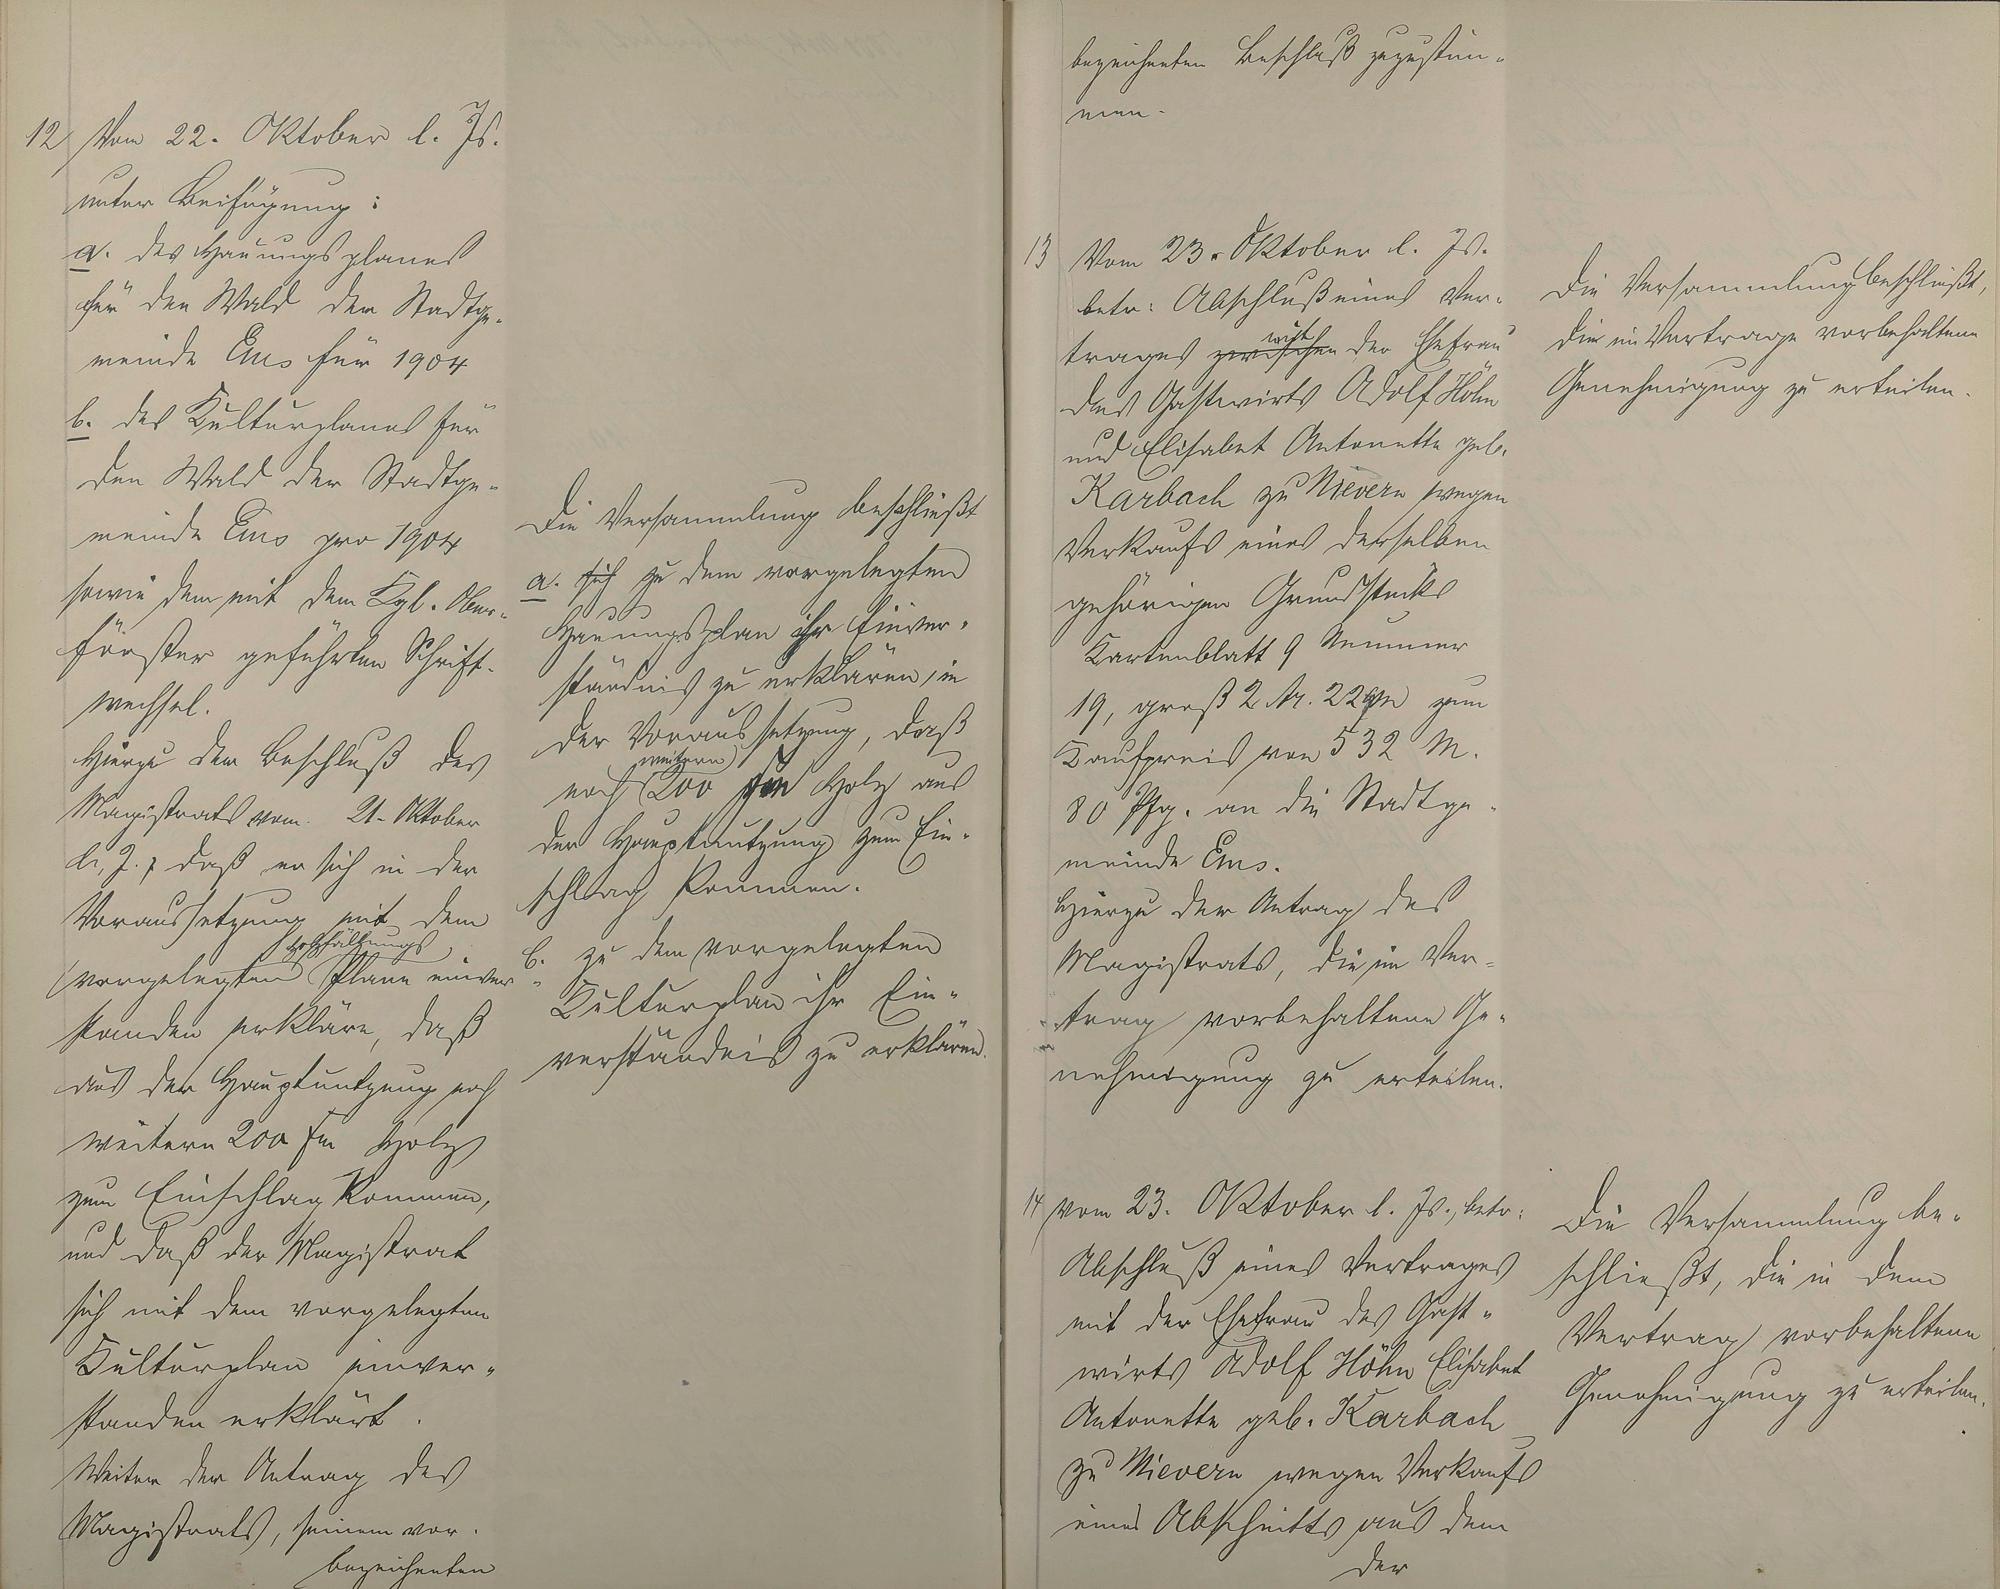 12 Vom 22. Oktober l. Js.
unter Beifügung:
a. des Hauungsplanes
für den Wald der Stadtge-
meinde Ems für 1904
b. des Kulturplanes für
den Wald der Stadtge-
meinde Ems pro 1904
sowie dem mit dem Kgl. Ober-
förster geführten Schrift-
wechsel.
Hierzu der Beschluß des
Magistrats vom 21. Oktober
l. J., daß er sich in der
Voraussetzung mit dem
Holzfällungs
vorgelegten Plane einver-
standen erkläre, daß
aus der Hauptnutzung noch
weitere 200 fm Holz
zum Einschlag kommen,
und daß der Magistrat
sich mit dem vorgelegten
Kulturplan einver-
standen erklärt.
Weiter der Antrag des
Magistrats, seinem vor-
bezeichneten
Die Versammlung beschließt
a. sich zu dem vorgelegten
Hauungsplan ihr Einver-
ständnis zu erklären, in
der Voraussetzung, daß
weitere
noch 200 fm Holz aus
der Hauptnutzung zum Ein-
schlag kommen.
b. zu dem vorgelegten
Kulturplan ihr Ein-
verständnis zu erklären.
bezeichneten Beschluß zuzustim-
men.
13 Vom 23. Oktober l. Js.
betr: Abschluß eines Ver-
mit
trages zwischen der Ehefrau
des Gastwirts Adolf Höhn
und Elisabet Antonette geb.
Karbach zu Nievern wegen
Verkaufs eines derselben
gehörigen Grundstücks
Kartenblatt 9 Nummer
19, groß 2 Ar. 22 qm zum
Kaufpreis von 532 M.
80 Pfg. an die Stadtge-
meinde Ems.
Hierzu der Antrag des
Magistrats, die im Ver-
trag vorbehaltene Ge-
nehmigung zu erteilen.
Die Versammlung beschließt,
die im Vertrage vorbehaltene
Genehmigung zu erteilen.
14 Vom 23. Oktober l. Js., betr:
Abschluß eines Vertrages
mit der Ehefrau des Gast-
wirts Adolf Höhn Elisabet
Antonette geb. Karbach
zu Nievern wegen Verkaufs
eines Abschnitts aus dem
der
Die Versammlung be-
schließt, die in dem
Vertrag vorbehaltene
Genehmigung zu erteilen.